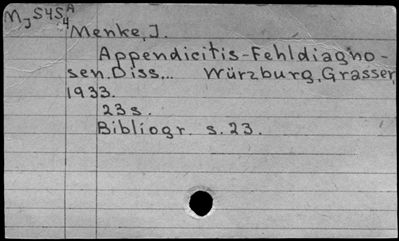 MJ S4S A
4
Menke, J.
Appendicitis-Fehldiagno-
sen. Diss... Würzburg, Grasser,
1933.
23 s.
Bibliogr. s. 23.